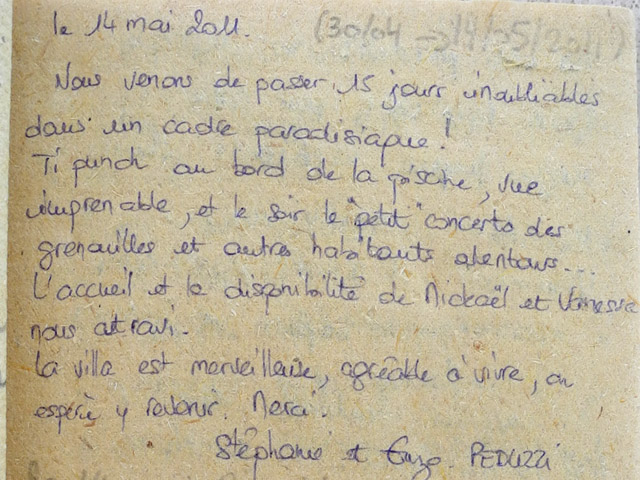 le 14 mai 2011. (30/04 → 14/05/2011)
Nous venons de passer 15 jours inoubliables
dans un cadre paradisiaque !
Ti punch au bord de la piscine, vue
imprenable, et le soir le "petit" concerto des
grenouilles et autres habitants alentours...
L'accueil et la disponibilité de Mickaël et Vanessa
nous a ravi.
La villa est merveilleuse, agréable à vivre, on
espère y revenir. Merci.
Stéphanie et Enzo PEDUZZI